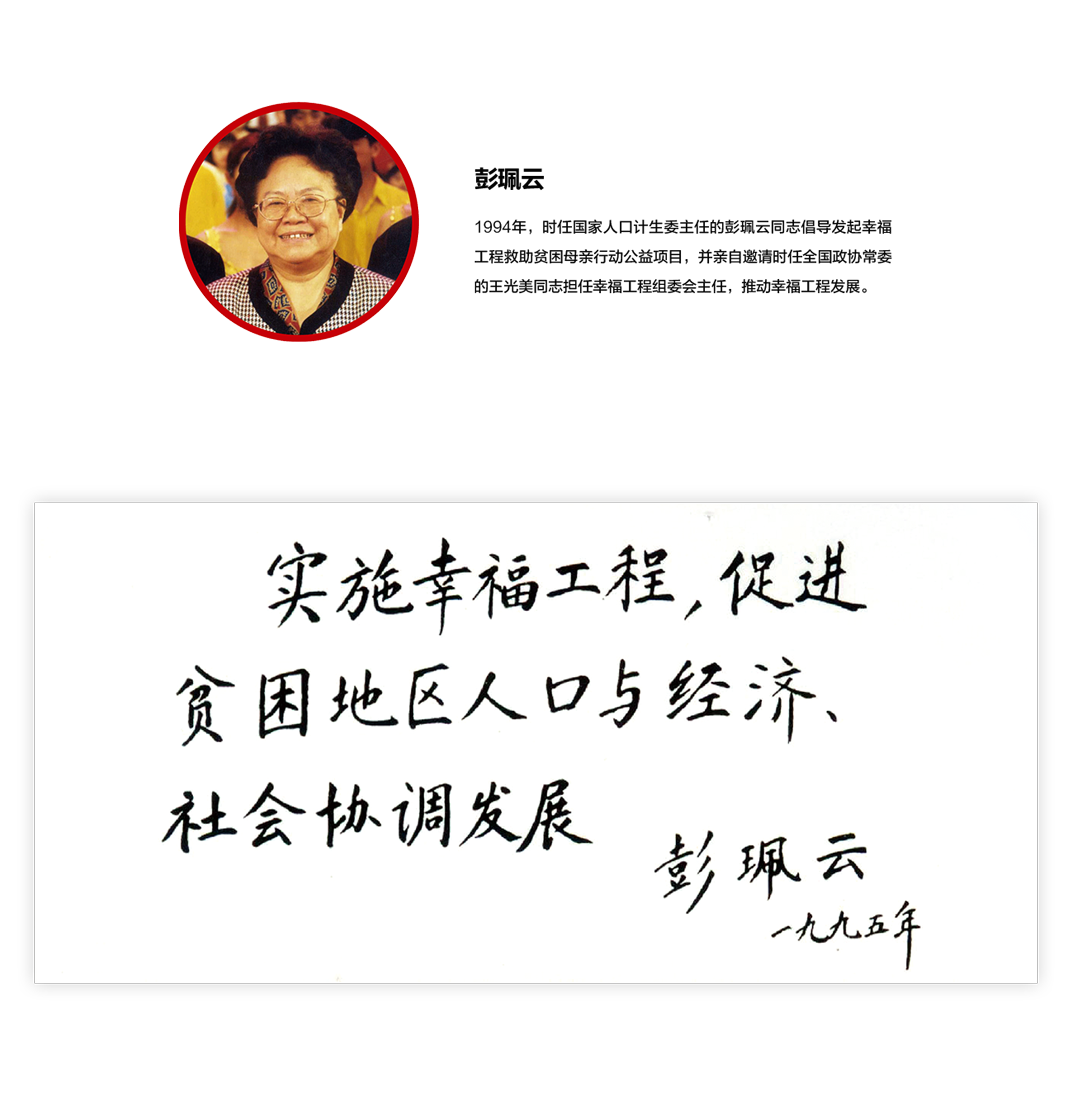 彭珮云
1994年，时任国家人口计生委主任的彭珮云同志倡导发起幸福
工程救助贫困母亲行动公益项目，并亲自邀请时任全国政协常委
的王光美同志担任幸福工程组委会主任，推动幸福工程发展。
实施幸福工程，促进
贫困地区人口与经济、
社会协调发展
彭珮云
一九九五年